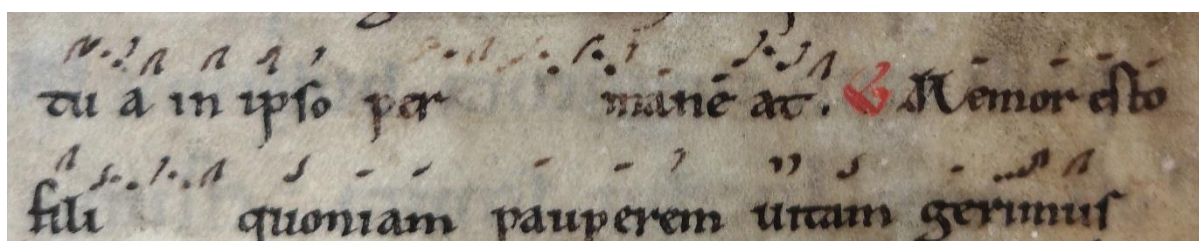 tu a in ipso per maneat. V Memor esto
fili quoniam pauperem uitam gerimus